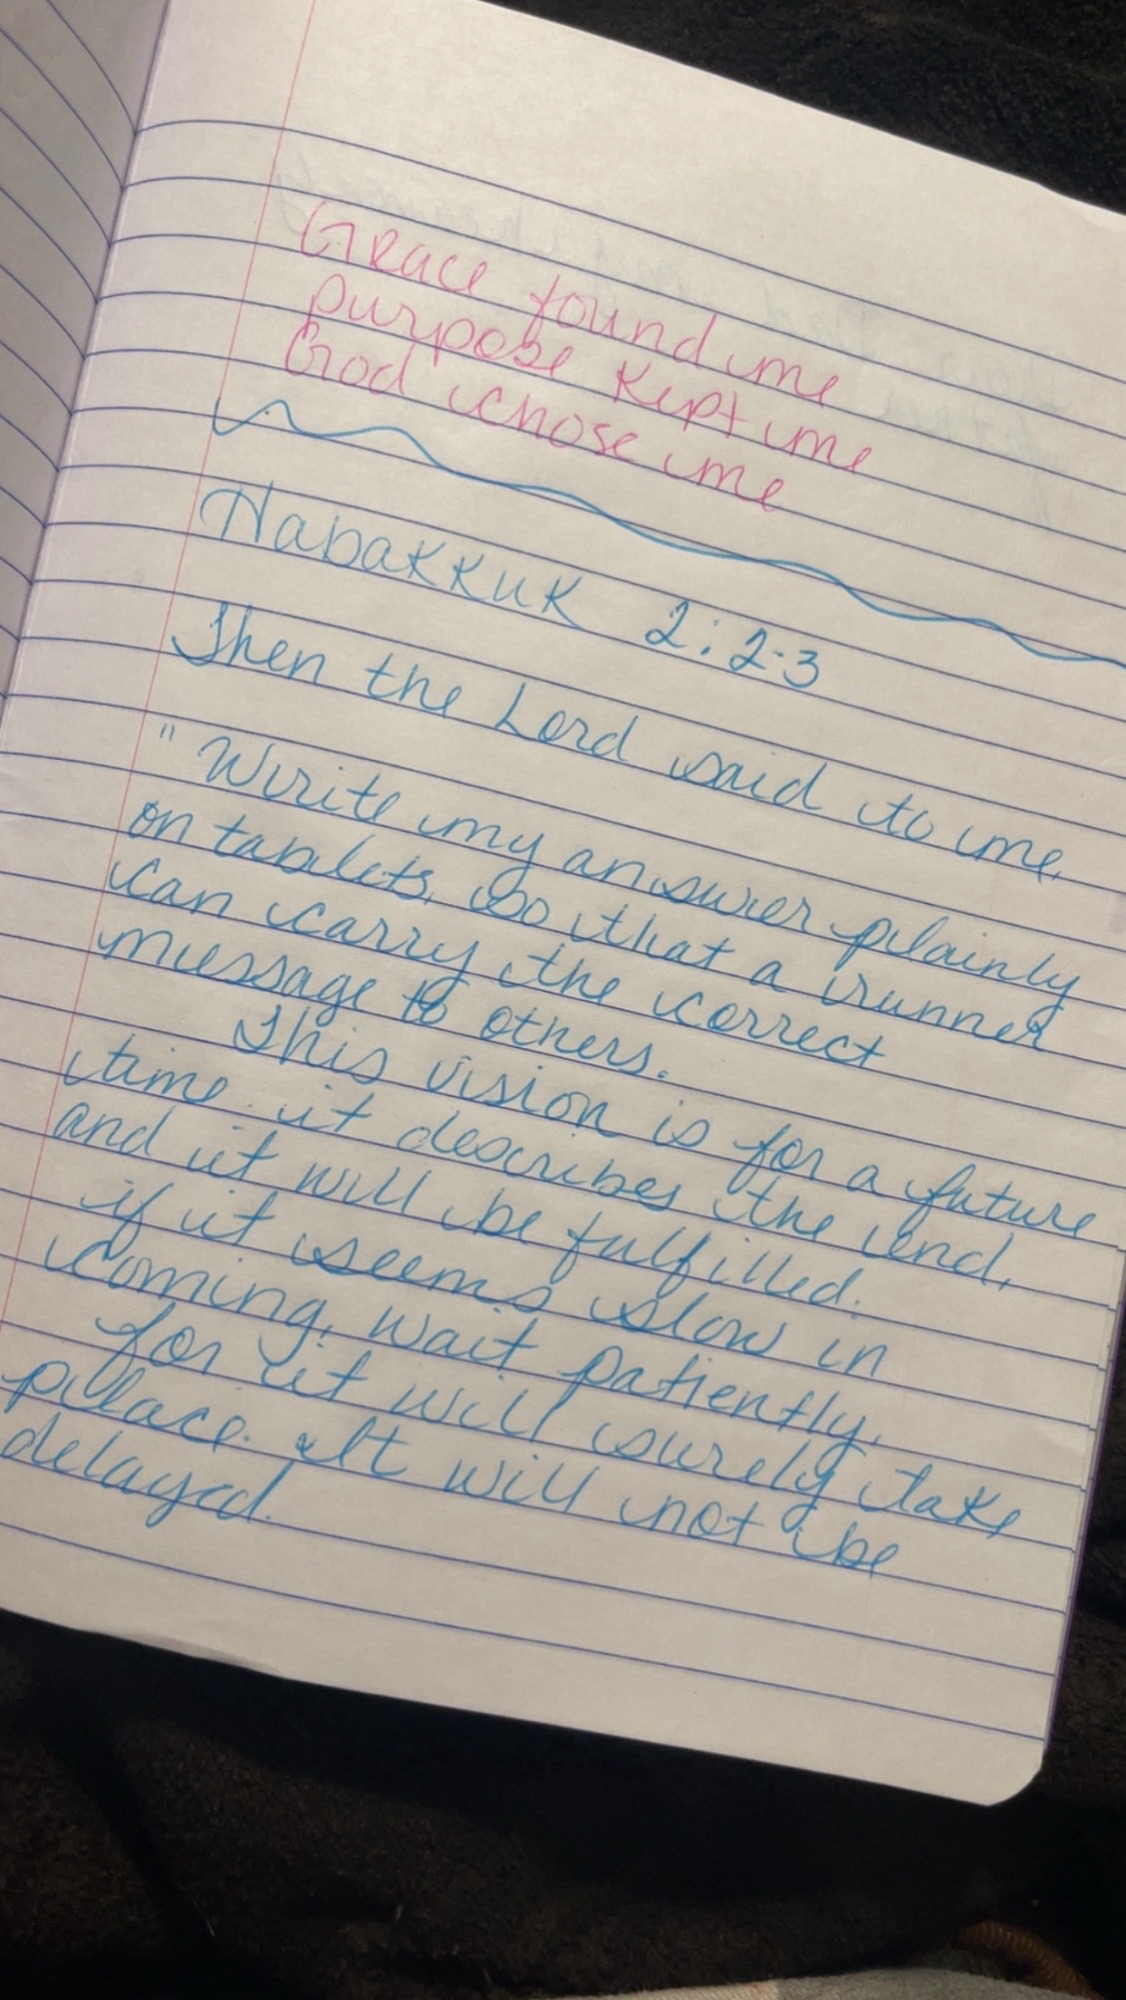 Grace found me
purpose kept me
God chose me
Habakkuk 2:2-3
Then the Lord said to me,
"Write my answer plainly
on tablets, so that a runner
can carry the correct
message to others.
This vision is for a future
time. it describes the end,
and it will be fulfilled.
if it seems slow in
coming, wait patiently,
for it will surely take
place. It will not be
delayed.